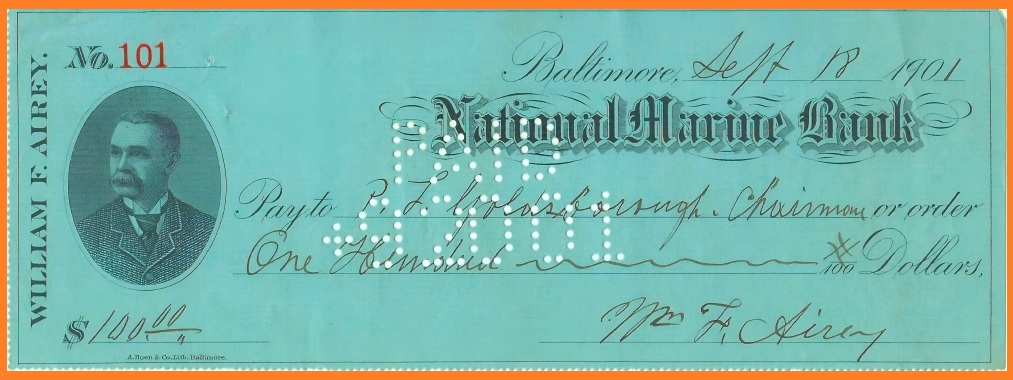 WILLIAM F. AIREY.
No. 101
Baltimore, Sept 18 1901
National Marine Bank
PAID
Pay to P. L. Goldsborough. Chairman or order
One Hundred xx/100 Dollars,
$ 100.00
Wm F. Airey
A. Hoen & Co. Lith. Baltimore.